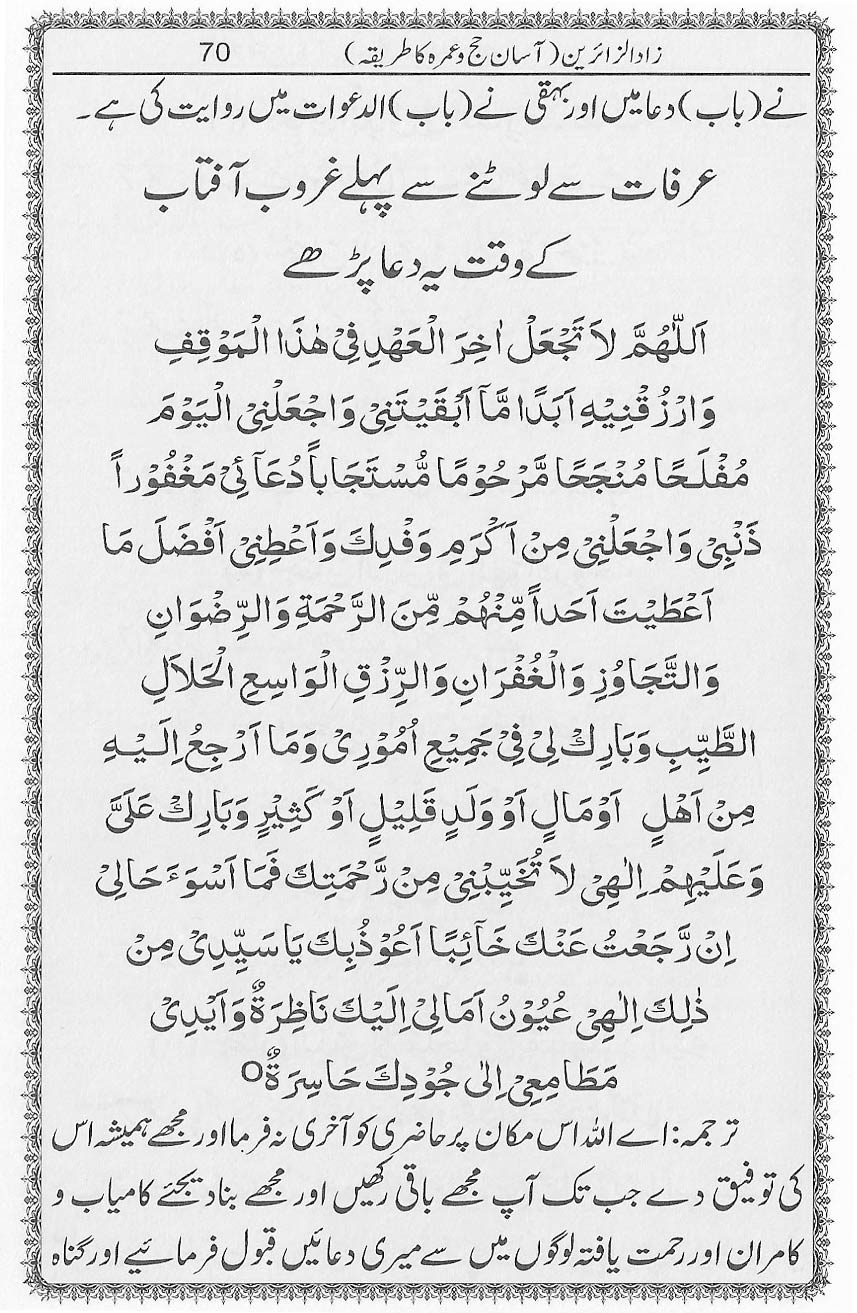 زاد الزائرین (آسان حج و عمرہ کا طریقہ) 70
نے (باب) دعا میں اور بہقی نے (باب) الدعوات میں روایت کی ہے۔
عرفات سے لوٹنے سے پہلے غروب آفتاب
کے وقت یہ دعا پڑھے
اَللّٰهُمَّ لاَ تَجْعَلْ اٰخِرَ الْعَهْدِ فِیْ هٰذَا الْمَوْقِفِ
وَارْزُقْنِیْهِ اَبَدًا مَّآ اَبْقَیْتَنِیْ وَاجْعَلْنِی الْیَوْمَ
مُفْلَحًا مُنْجَحًا مَّرْحُوْمًا مُّسْتَجَاباً دُعَآئِیْ مَغْفُوْراً
ذَنْبِیْ وَاجْعَلْنِیْ مِنْ اَكْرَمِ وَفْدِكَ وَاَعْطِنِیْ اَفْضَلَ مَا
اَعْطَیْتَ اَحَداً مِّنْهُمْ مِّنَ الرَّحْمَةِ وَالرِّضْوَانِ
وَالتَّجَاوُزِ وَالْغُفْرَانِ وَالرِّزْقِ الْوَاسِعِ الْحَلَالِ
الطَّیِّبِ وَبَارِكْ لِیْ فِیْ جَمِیْعِ اُمُوْرِیْ وَمَا اَرْجِعُ اِلَیْهِ
مِنْ اَهْلٍ اَوْمَالٍ اَوْ وَلَدٍ قَلِیْلٍ اَوْ كَثِیْرٍ وَبَارِكْ عَلَیَّ
وَعَلَیْهِمْ اِلٰهِیْ لاَ تُخَیِّبْنِیْ مِنْ رَّحْمَتِكَ فَمَا اَسْوَءَ حَالِیْ
اِنْ رَّجَعْتُ عَنْكَ خَآئِبًا اَعُوْذُبِكَ یَا سَیِّدِیْ مِنْ
ذٰلِكَ اِلٰهِیْ عُیُوْنُ اَمَالِیْ اِلَیْكَ نَاظِرَةٌ وَاَیْدِیْ
مَطَامِعِیْ اِلٰی جُوْدِكَ حَاسِرَةٌ O
ترجمہ: اے اللہ اس مکان پر حاضری کو آخری نہ فرما اور مجھے ہمیشہ اس
کی توفیق دے جب تک آپ مجھے باقی رکھیں اور مجھے بنا دیجئے کامیاب و
کامران اور رحمت یافتہ لوگوں میں سے میری دعائیں قبول فرمائیے اور گناہ